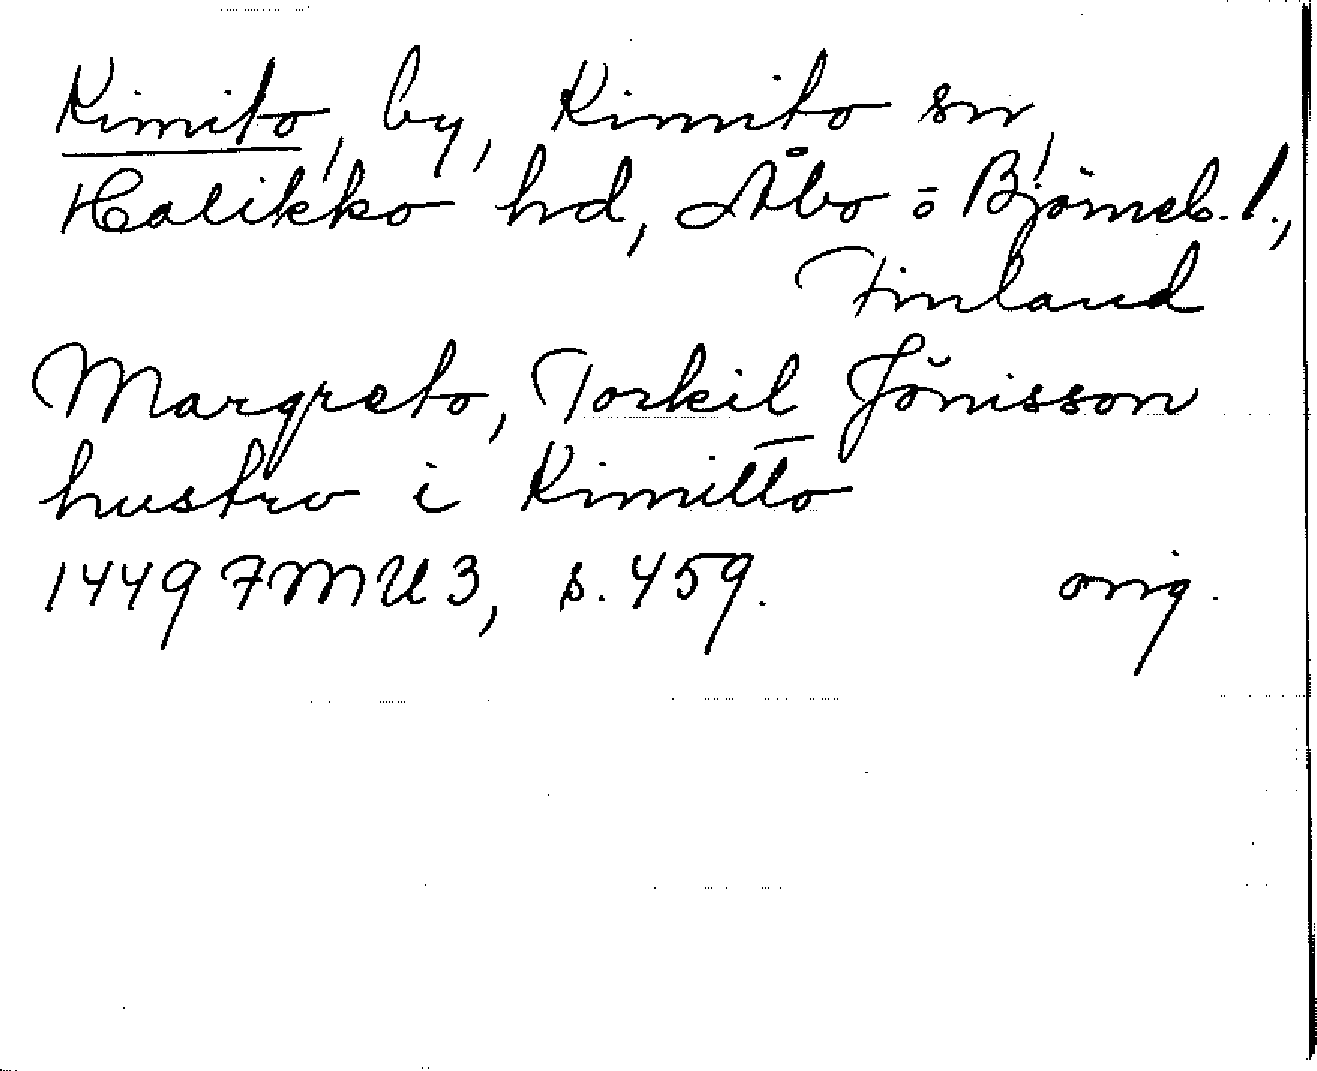 Kimito, by, Kimito sn,
Halikko hd, Åbo o Björneb. l.,
Finland
Margreto, Torkil Jönisson
hustro i Kimitto
1449 FMU 3, s. 459. orig.